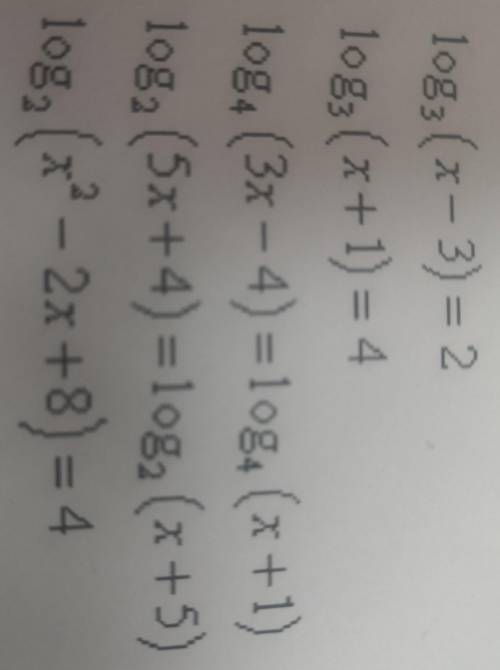 log₃(x − 3) = 2
log₃(x + 1) = 4
log₄(3x − 4) = log₄(x + 1)
log₂(5x + 4) = log₂(x + 5)
log₂(x² − 2x + 8) = 4